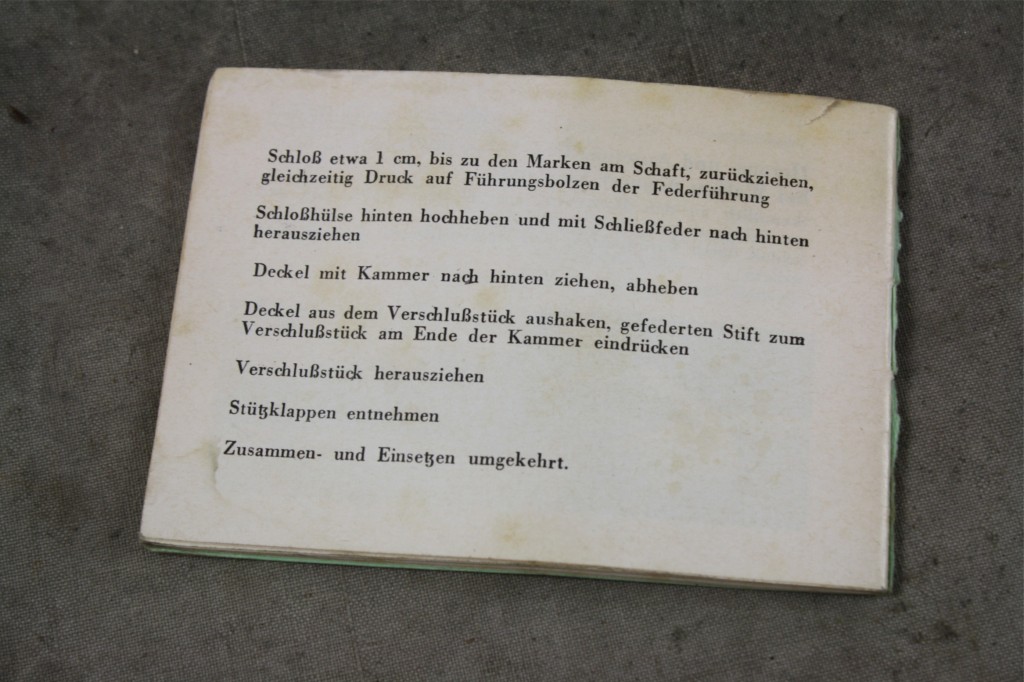 Schloß etwa 1 cm, bis zu den Marken am Schaft, zurückziehen,
gleichzeitig Druck auf Führungsbolzen der Federführung
Schloßhülse hinten hochheben und mit Schließfeder nach hinten
herausziehen
Deckel mit Kammer nach hinten ziehen, abheben
Deckel aus dem Verschlußstück aushaken, gefederten Stift zum
Verschlußstück am Ende der Kammer eindrücken
Verschlußstück herausziehen
Stützklappen entnehmen
Zusammen- und Einsetzen umgekehrt.